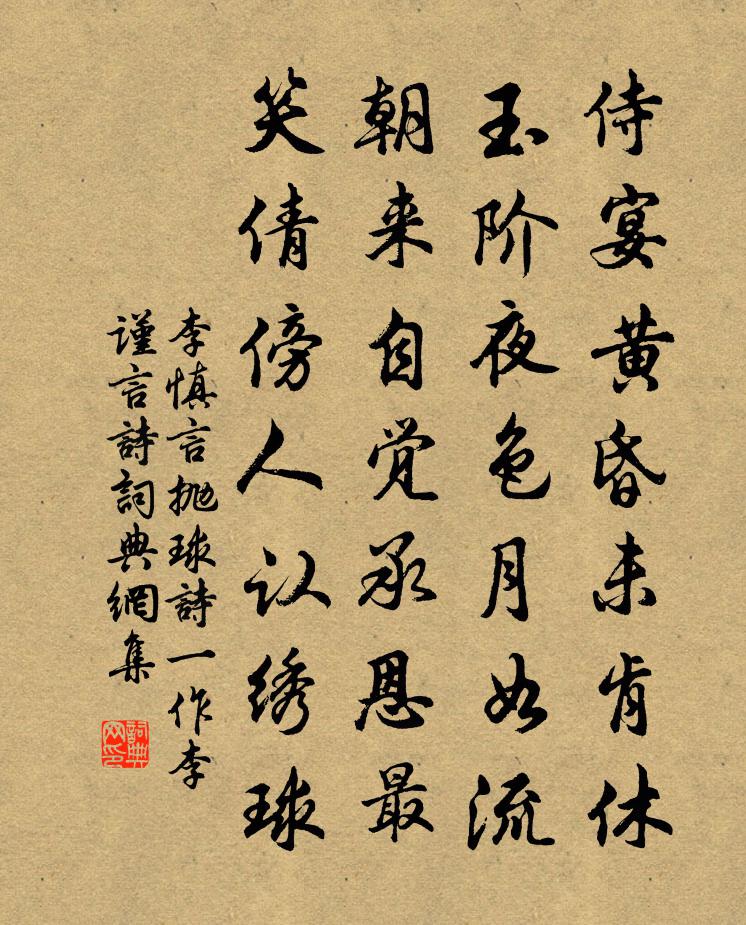 侍宴黄昏未肯休
玉阶夜色月如流
朝来自觉承恩最
笑倩傍人认绣球
李慎言抛球詩一作李
謹言詩詞典網集
詞典
网印